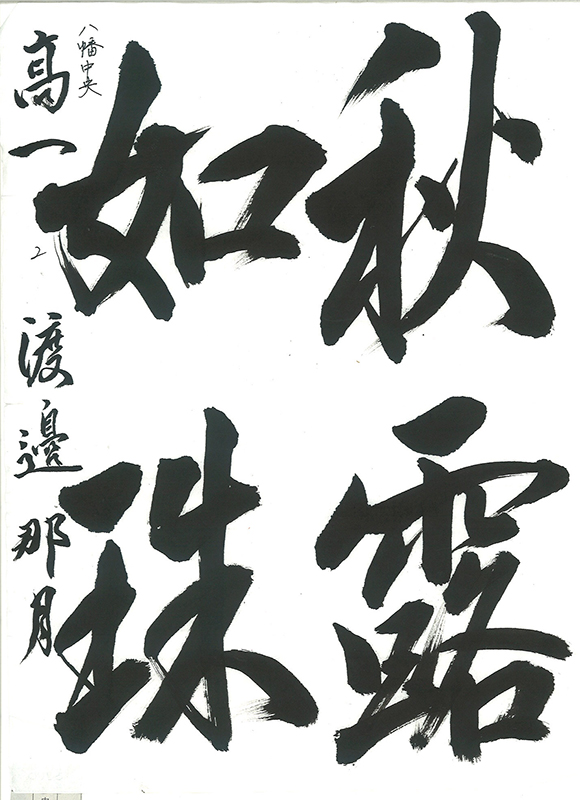 秋露
如珠
八幡中央
高一 2 渡邊那月